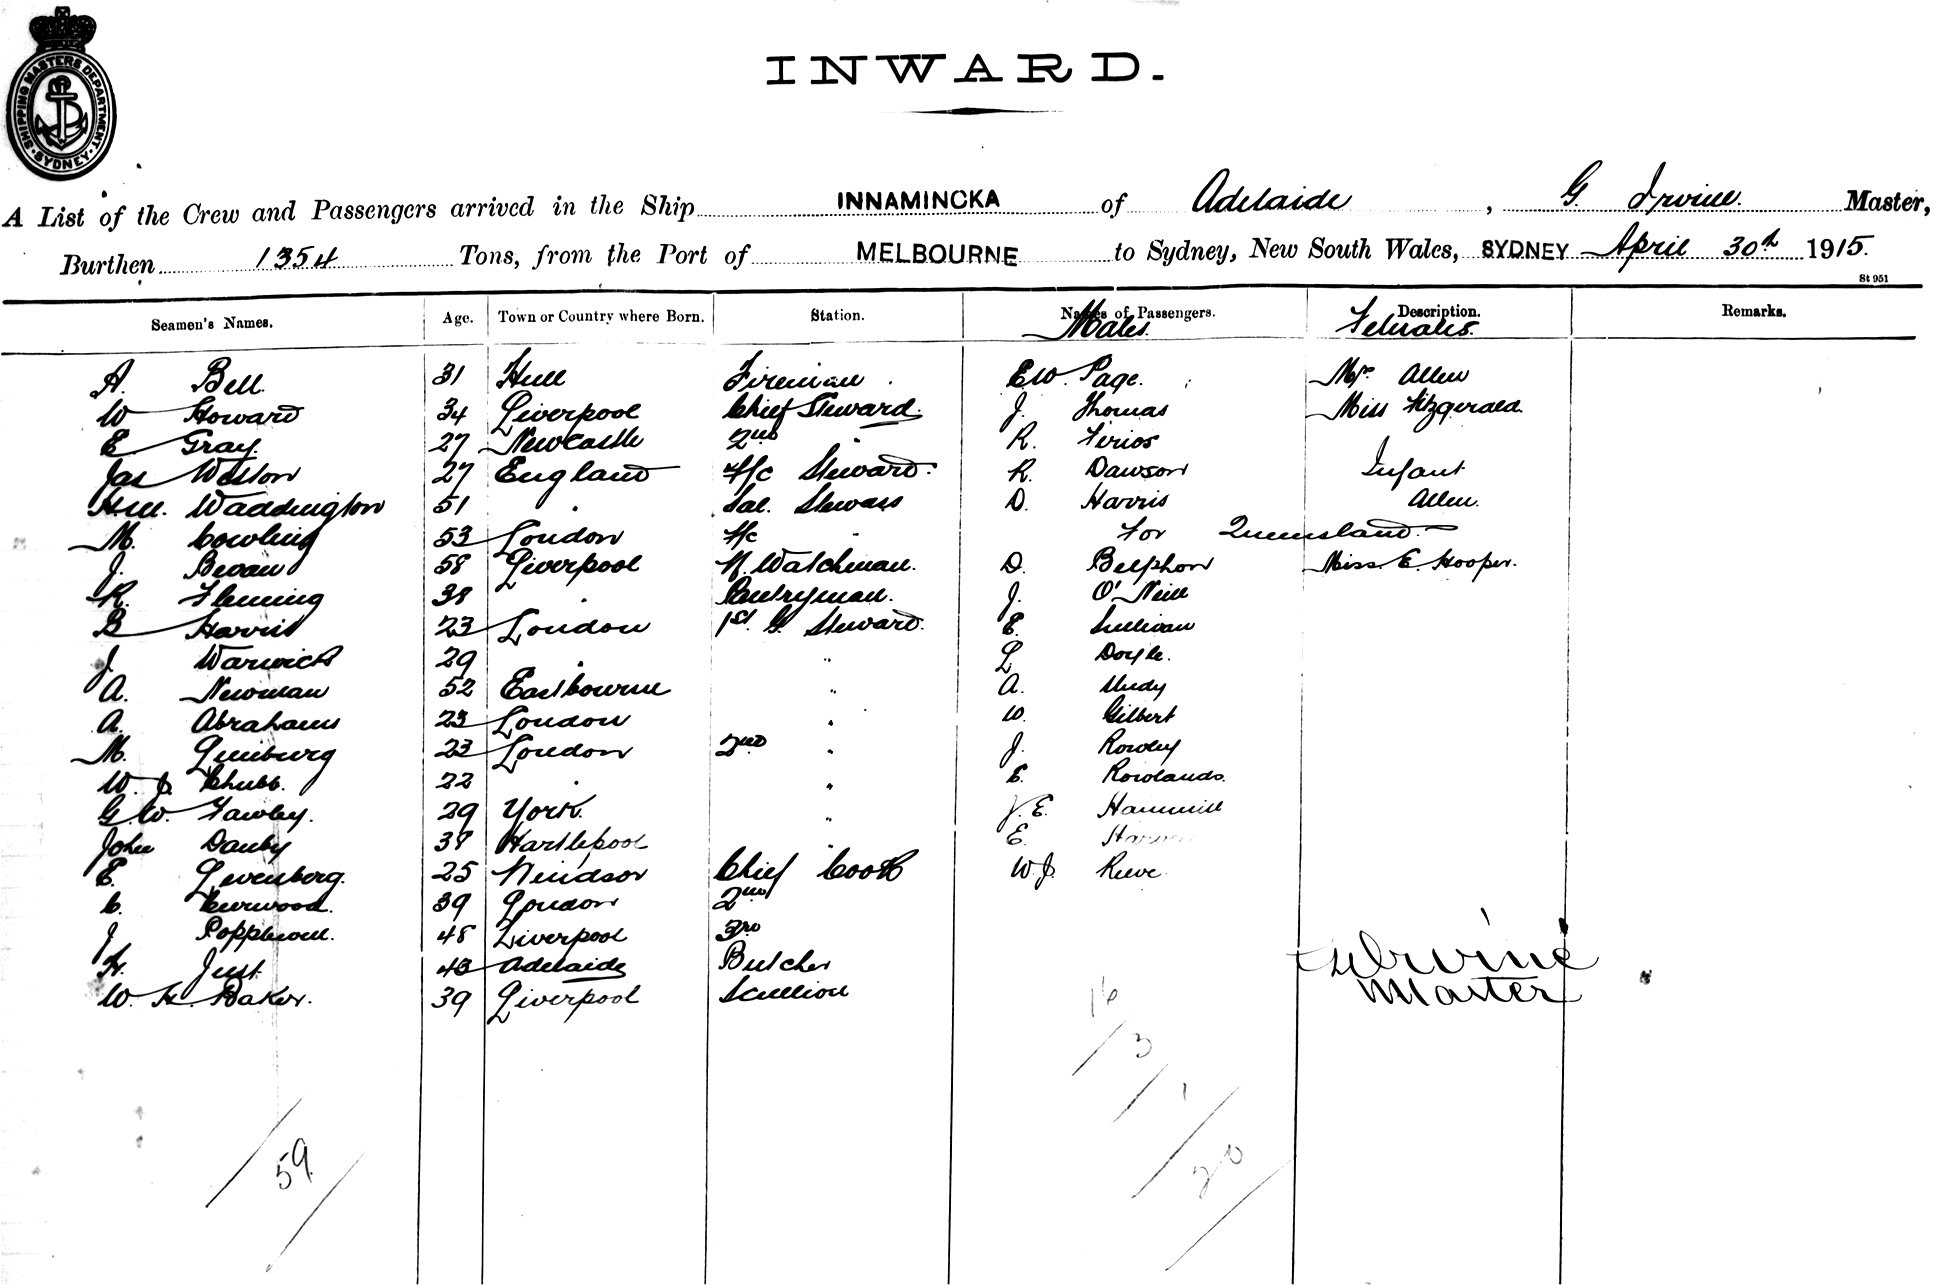 SHIPPING MASTERS DEPARTMENT. SYDNEY
INWARD.
A List of the Crew and Passengers arrived in the Ship INNAMINCKA of Adelaide, G. Irvine. Master,
Burthen 1354 Tons, from the Port of MELBOURNE to Sydney, New South Wales, SYDNEY April 30th 1915.
St 951
Seamen's Names. Age. Town or Country where Born. Station. Names of Passengers. Description. Remarks.
Males. Females.
A. Bell. 31 Hull Fireman E.W. Page. Mrs. Allen
W Howard 34 Liverpool Chief Steward. J. Thomas Miss Fitzgerald.
E Gray. 27 Newcastle 2nd " R.
Jas Weston 27 England F/c Steward. R. Dawson Infant
Waddington 51 " Sal. Stewass D. Harris Allen.
M. Cowling 53 London F/c " For Queensland.
J. Bevan 58 Liverpool N. Watchman. D. Belphon Miss. E. Hooper.
R. Fleming 38 " Pantryman. J. O'Neill
B Harris 23 London 1st G. Steward. E. Sullivan
J. Warwick 29 " " L Doyle.
A. Newman 52 Eastbourne " A.
A. Abrahams 23 London " W. Gilbert
M. 23 London 2nd " J. Rowley
W. J. Chubb. 22 " " E. Rowlands.
G.W. Fawley. 29 York. " J.E. Hammill
John Danby 38 Hartlepool " E.
E. Levenberg. 25 Windsor Chief Cook W.J. Reeve
C. Curwood. 39 London 2nd "
J Popplewell. 48 Liverpool 3rd "
H. Just 43 Adelaide Butcher
W. H. Baker. 39 Liverpool Scullion
G Irvine
Master
16
3
1
20
59